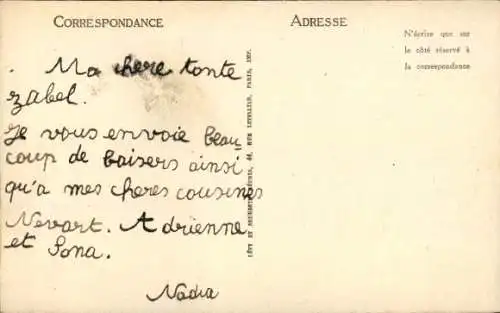 CORRESPONDANCE
ADRESSE
N'écrire que sur
le côté réservé à
la correspondance
Ma chere tante
zabel.
Je vous envoie beau
coup de baisers ainsi
qu'a mes cheres cousines
Nevart. Adrienne
et Sona.
Nadia
LÉVY ET NEURDEIN RÉUNIS, 44, RUE LETELLIER, PARIS, XVe.